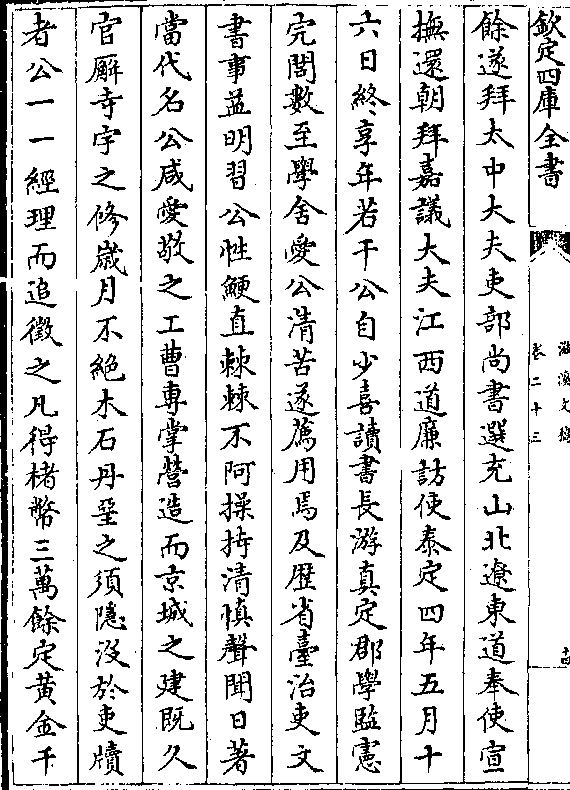 欽定四庫全書
滋溪文稿
卷二十三
十四
餘遂拜太中大夫吏部尚書選充山北遼東道奉使宣
撫還朝拜嘉議大夫江西道廉訪使泰定四年五月十
六日終享年若干公自少喜讀書長游真定郡學監憲
完閭數至學舍愛公清苦遂薦用焉及歴省臺治吏文
書事益明習公性鯁直棘棘不阿操持清慎聲聞日著
當代名公咸愛敬之工曹專掌營造而京城之建既久
官廨寺宇之修歲月不絶木石丹堊之須隱沒於吏牘
者公一一經理而追徵之凡得楮幣三萬餘定黄金千